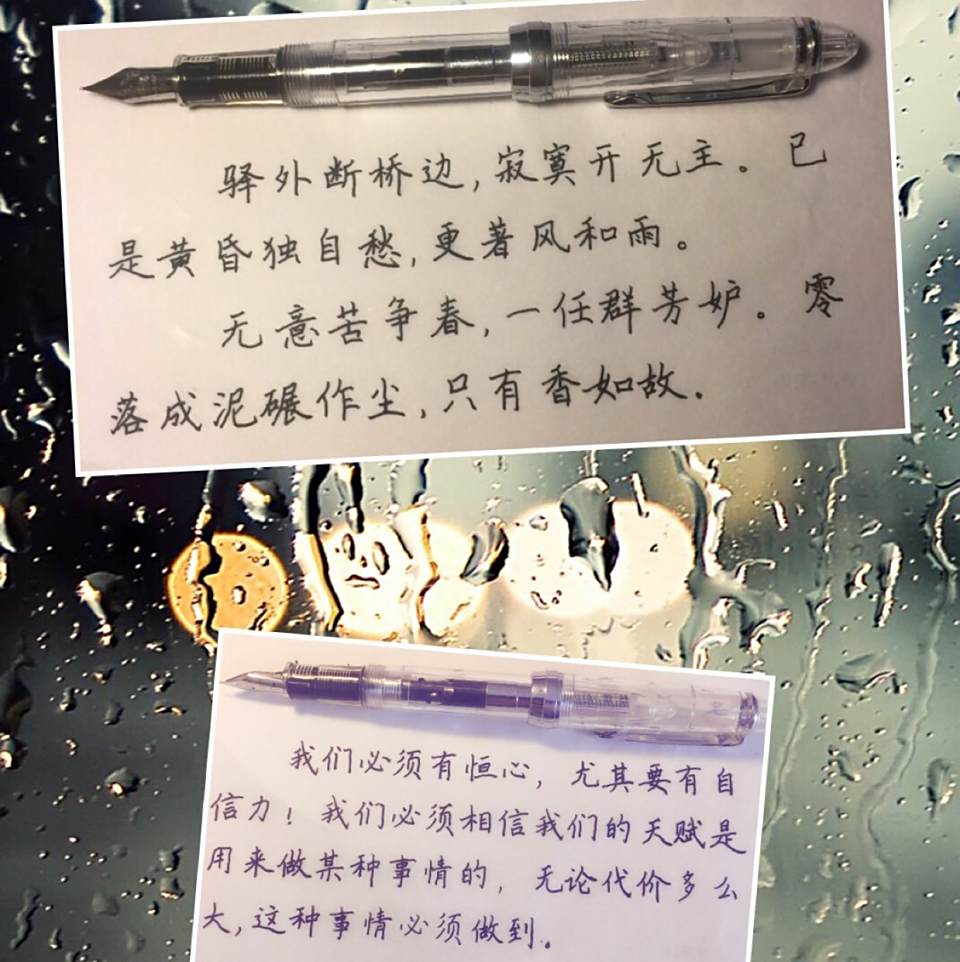 驿外断桥边,寂寞开无主。已
是黄昏独自愁,更著风和雨。
无意苦争春,一任群芳妒。零
落成泥碾作尘,只有香如故.
我们必须有恒心,尤其要有自
信力!我们必须相信我们的天赋是
用来做某种事情的,无论代价多么
大,这种事情必须做到。